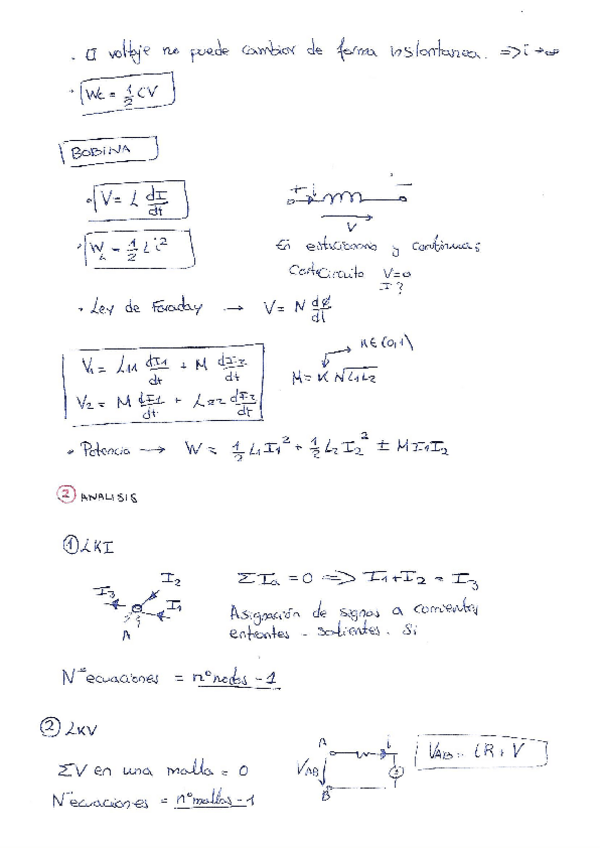 · El voltaje no puede cambiar de forma instantanea. => i → ∞
· Wc = 1/2 CV
BOBINA
· V = L dI/dt
+ i -
V
· W_L = 1/2 L i²
En estacionario y continuas
Cortocircuito V=0
I?
· Ley de Faraday → V = N dφ/dt
V1 = L11 dI1/dt + M dI2/dt
K ∈ (0,1)
M = K √L1L2
V2 = M dI1/dt + L22 dI2/dt
· Potencia → W = 1/2 L1 I1² + 1/2 L2 I2² ± M I1 I2
2 ANALISIS
1 LKI
I3 I2 I1
A
Σ Ia = 0 => I1 + I2 = I3
Asignación de signos a corrientes
entrantes - salientes. Si
Nº ecuaciones = nº nodos - 1
2 LKV
A i
VAB
B
VAB = iR + V
ΣV en una malla = 0
Nº ecuaciones = nº mallas - 1